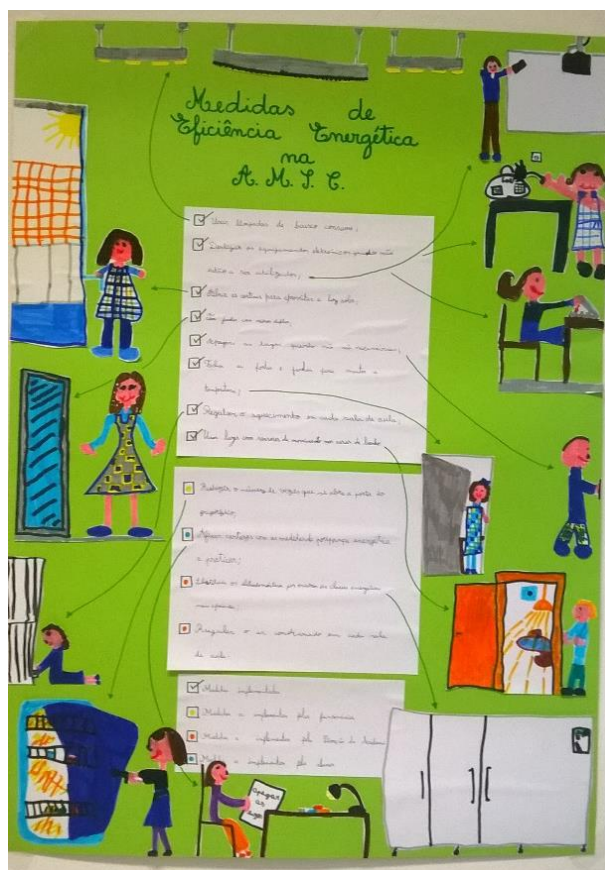 Medidas de
Eficiência Energética
na
A. M. S. C.
Usar lâmpadas de baixo consumo;
Desligar os equipamentos eletrónicos quando não
estão a ser utilizados;
Abrir as cortinas para aproveitar a luz solar;
Apagar as luzes quando não são necessárias;
Fechar as portas e janelas para manter a
temperatura;
Regular o aquecimento em cada sala de aula;
Usar luzes com sensores de movimento nas casas de banho.
Reduzir o número de vezes que se abre a porta do
frigorífico;
Afixar cartazes com as medidas de poupança energética
a praticar;
Substituir os eletrodomésticos por outros de classe energética
mais eficiente;
Regular o ar condicionado em cada sala
de aula.
Medida implementada
Medida a implementar pela
Medida a implementar pela Direção da Academia
Medida a implementar pelos alunos
Apagar
as
luzes